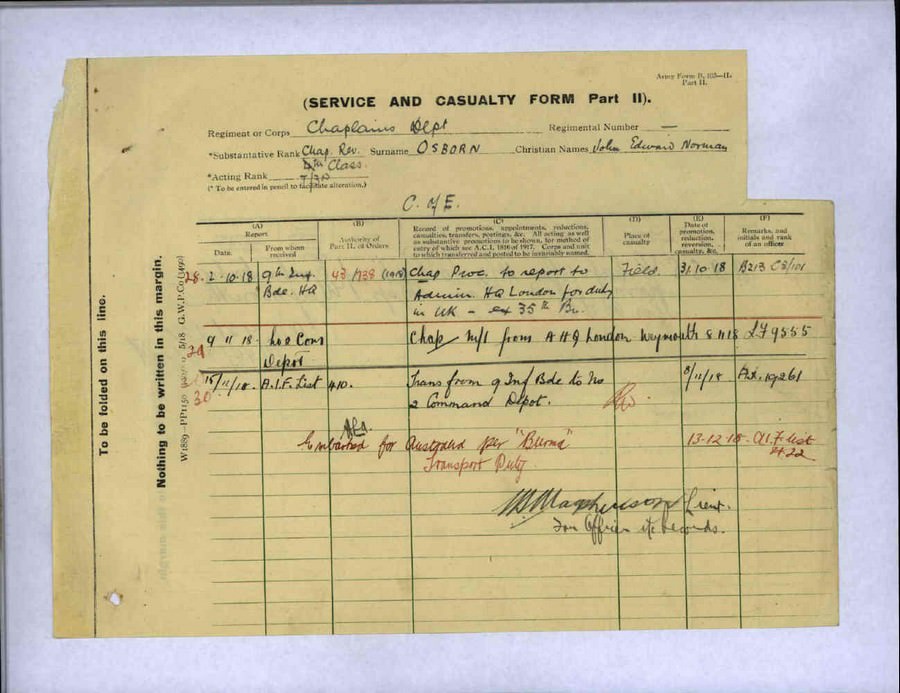 Army Form B. 103—II.
Part II.
(SERVICE AND CASUALTY FORM Part II).
Regiment or Corps Chaplains Dept Regimental Number —
*Substantative Rank Chap. Rev. Surname OSBORN Christian Names John Edward Norman
4th Class.
*Acting Rank
(* To be entered in pencil to facilitate alteration.)
C. of E.
(A) (B) (C) (D) (E) (F)
Report
Date. From whom received
Authority of Part II. of Orders
Record of promotions, appointments, reductions, casualties, transfers, postings, &c. All acting as well as substantive promotions to be shown, for method of entry of which see A.C.I. 1816 of 1917. Corps and unit to which transferred and posted to be invariably named.
Place of casualty
Date of promotion, reduction, reversion, casualty, &c.
Remarks, and initials and rank of an officer
28. 2-10-18 9th Inf. 43/738 (1918) Chap Proc. to report to Field. 31.10.18 B213 C3/101
Bde. HQ Admin. HQ London for duty
in UK - ex 35th Bn.
9 11 18 No 2 Com Chap m/i from AHQ London Weymouth 8 11 18 L79555
29 Depot
15/11/18. A.I.F. List 410. Trans from 9 Inf Bde to No 8/11/18
30 2 Command Depot.
Embarked for Australia per "Burma" 13-12-18. A.I.F list
Transport Duty. 422
Lieut.
For Officer i/c records.
To be folded on this line.
Nothing to be written in this margin.